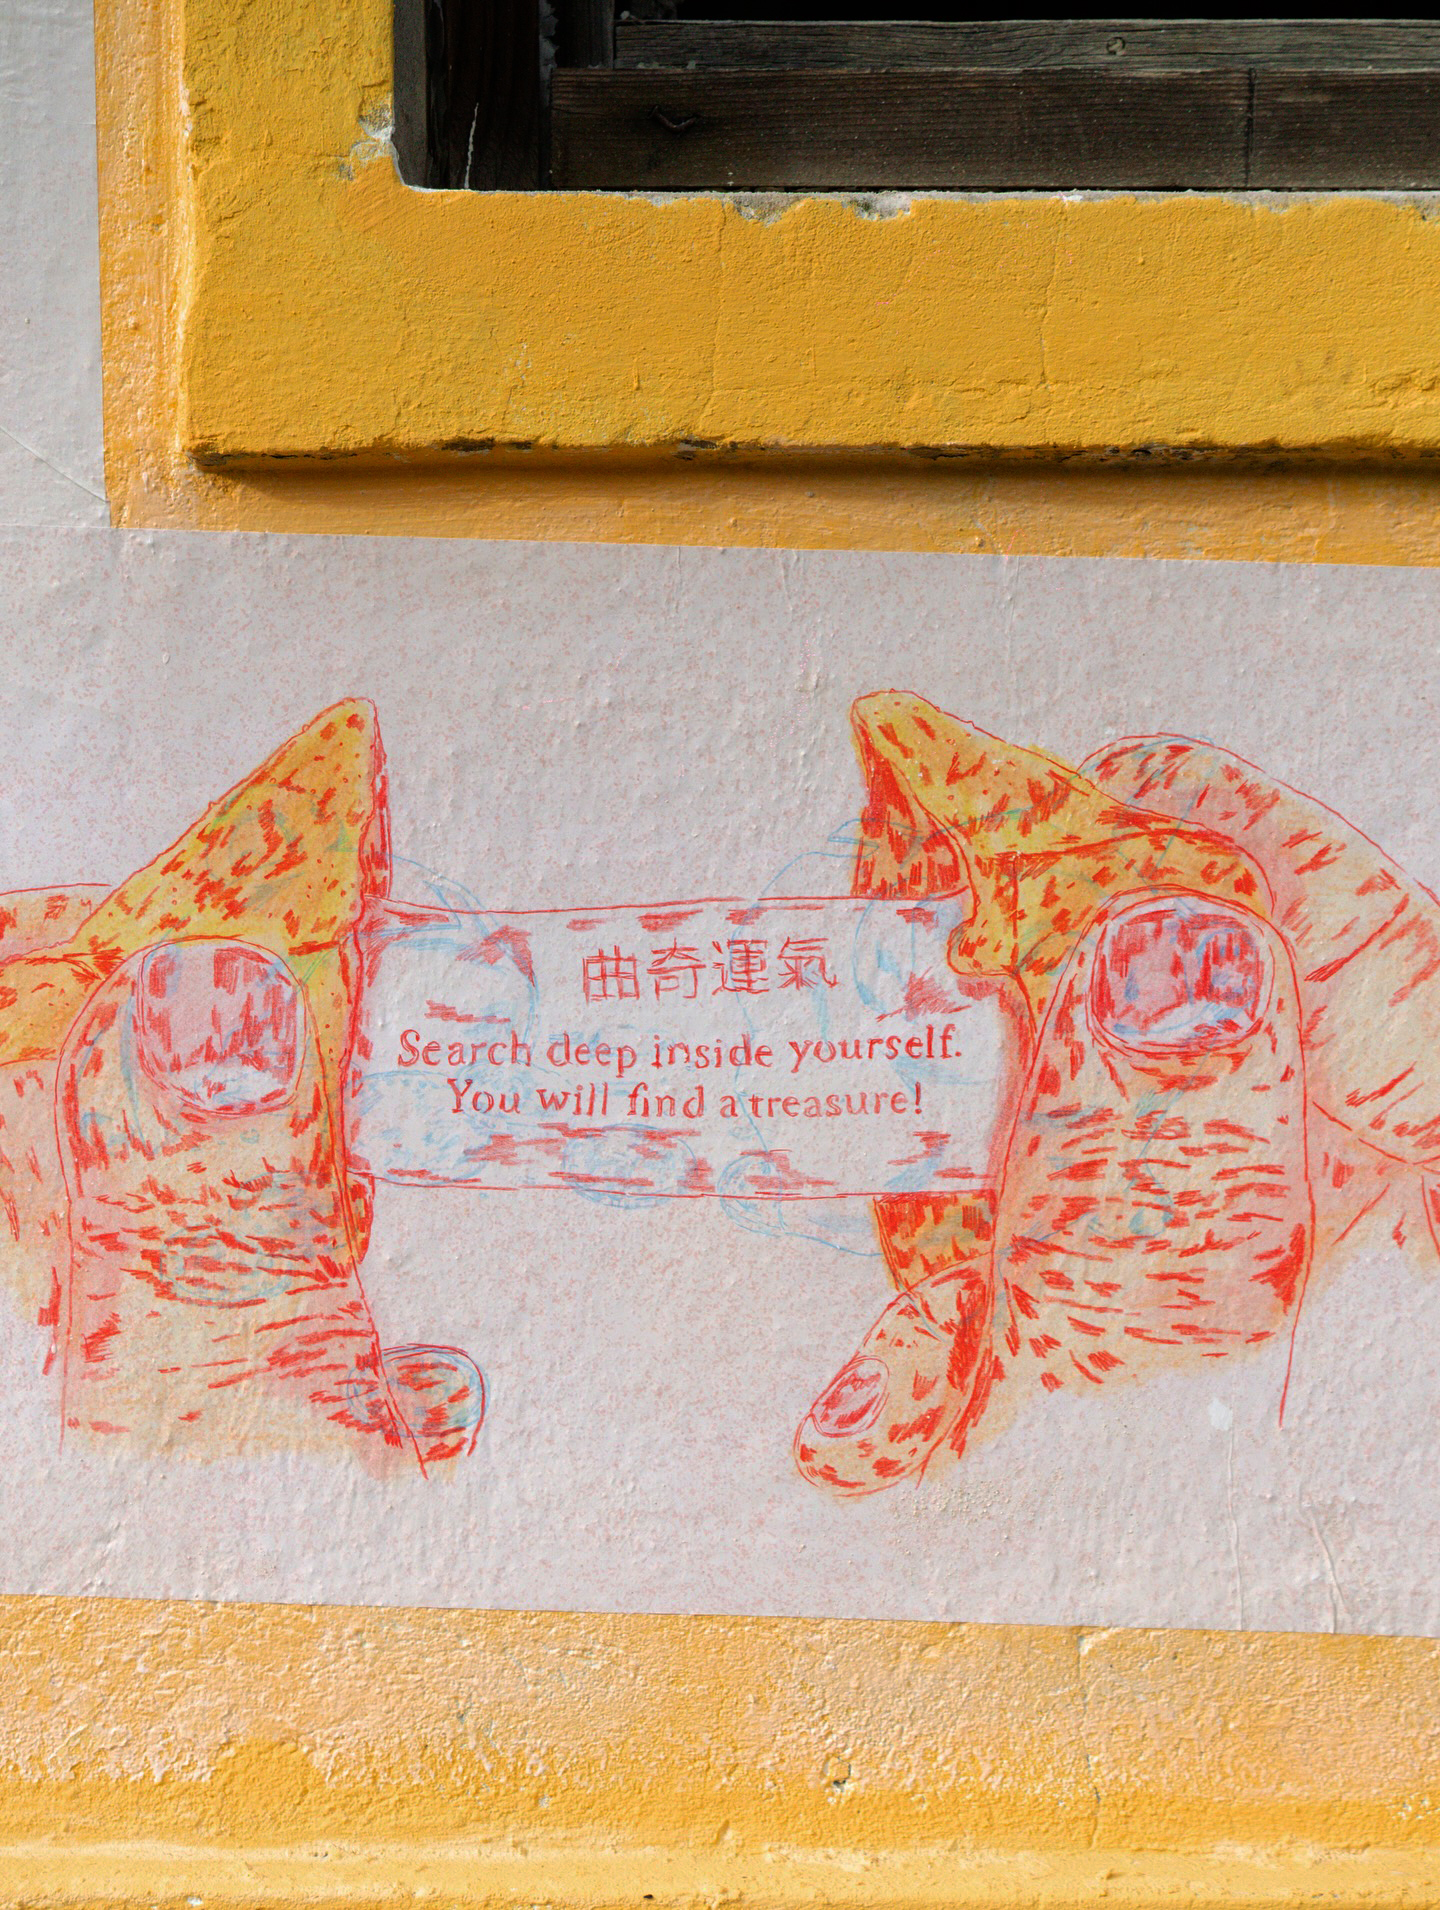 曲奇運氣
Search deep inside yourself.
You will find a treasure!